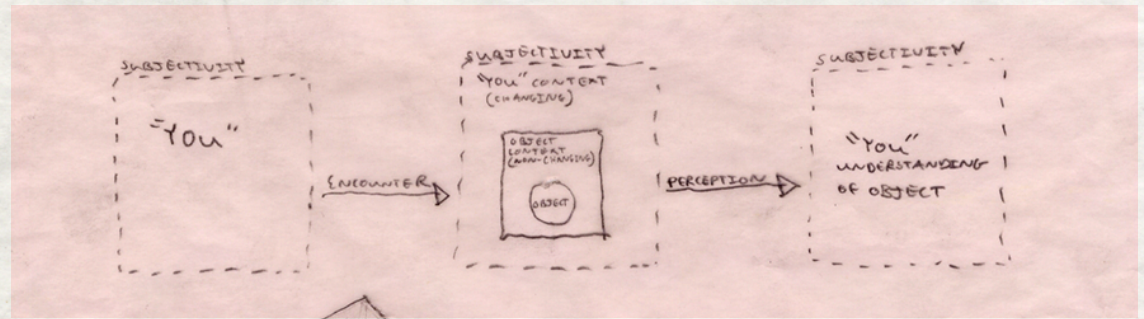 SUBJECTIVITY
"YOU"
ENCOUNTER
SUBJECTIVITY
"YOU" CONTEXT
(CHANGING)
OBJECT
CONTEXT
(NON-CHANGING)
OBJECT
PERCEPTION
SUBJECTIVITY
"YOU"
UNDERSTANDING
OF OBJECT